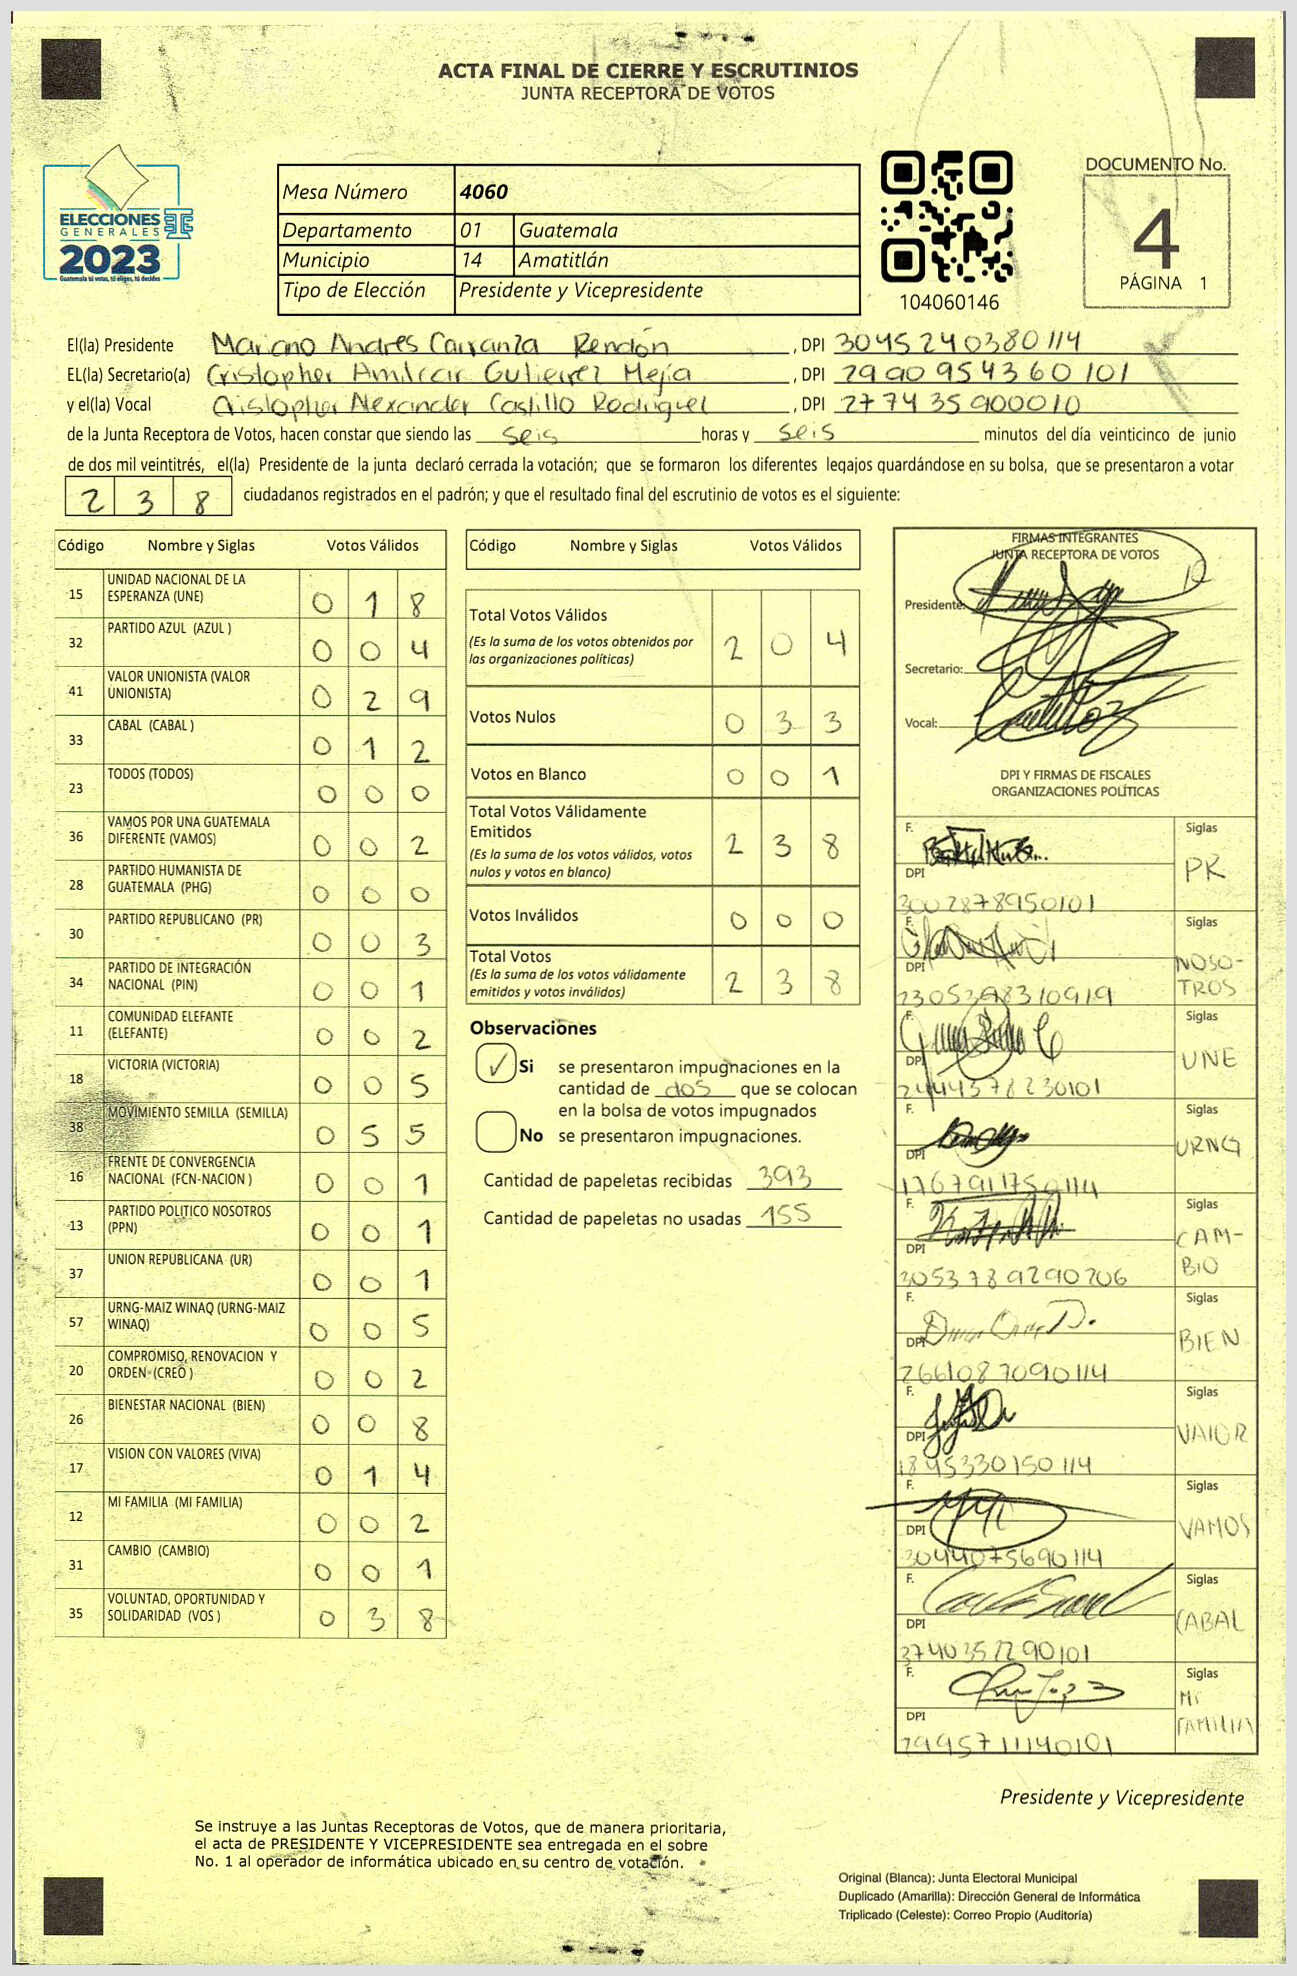 ACTA FINAL DE CIERRE Y ESCRUTINIOS
JUNTA RECEPTORA DE VOTOS
ELECCIONES
GENERALES
2023
Guatemala tú votas, tú eliges, tú decides
Mesa Número 4060
Departamento 01 Guatemala
Municipio 14 Amatitlán
Tipo de Elección Presidente y Vicepresidente
104060146
DOCUMENTO No.
4
PÁGINA 1
El(la) Presidente Mariano Andres Carranza Rendón, DPI 3045240380114
EL(la) Secretario(a) Cristopher Amilcar Gutierrez Mejía, DPI 2990954360101
y el(la) Vocal Cristopher Alexander Castillo Rodriguez, DPI 2774359000010
de la Junta Receptora de Votos, hacen constar que siendo las seis horas y seis minutos del día veinticinco de junio
de dos mil veintitrés, el(la) Presidente de la junta declaró cerrada la votación; que se formaron los diferentes legajos guardándose en su bolsa, que se presentaron a votar
238 ciudadanos registrados en el padrón; y que el resultado final del escrutinio de votos es el siguiente:
Código Nombre y Siglas Votos Válidos
15 UNIDAD NACIONAL DE LA ESPERANZA (UNE) 0 1 8
32 PARTIDO AZUL (AZUL ) 0 0 4
41 VALOR UNIONISTA (VALOR UNIONISTA) 0 2 9
33 CABAL (CABAL ) 0 1 2
23 TODOS (TODOS) 0 0 0
36 VAMOS POR UNA GUATEMALA DIFERENTE (VAMOS) 0 0 2
28 PARTIDO HUMANISTA DE GUATEMALA (PHG) 0 0 0
30 PARTIDO REPUBLICANO (PR) 0 0 3
34 PARTIDO DE INTEGRACIÓN NACIONAL (PIN) 0 0 1
11 COMUNIDAD ELEFANTE (ELEFANTE) 0 0 2
18 VICTORIA (VICTORIA) 0 0 5
38 MOVIMIENTO SEMILLA (SEMILLA) 0 5 5
16 FRENTE DE CONVERGENCIA NACIONAL (FCN-NACION ) 0 0 1
13 PARTIDO POLITICO NOSOTROS (PPN) 0 0 1
37 UNION REPUBLICANA (UR) 0 0 1
57 URNG-MAIZ WINAQ (URNG-MAIZ WINAQ) 0 0 5
20 COMPROMISO, RENOVACION Y ORDEN (CREO ) 0 0 2
26 BIENESTAR NACIONAL (BIEN) 0 0 8
17 VISION CON VALORES (VIVA) 0 1 4
12 MI FAMILIA (MI FAMILIA) 0 0 2
31 CAMBIO (CAMBIO) 0 0 1
35 VOLUNTAD, OPORTUNIDAD Y SOLIDARIDAD (VOS ) 0 3 8
Código Nombre y Siglas Votos Válidos
Total Votos Válidos 2 0 4
(Es la suma de los votos obtenidos por
las organizaciones políticas)
Votos Nulos 0 3 3
Votos en Blanco 0 0 1
Total Votos Válidamente
Emitidos 2 3 8
(Es la suma de los votos válidos, votos
nulos y votos en blanco)
Votos Inválidos 0 0 0
Total Votos 2 3 8
(Es la suma de los votos válidamente
emitidos y votos inválidos)
Observaciones
✓ Si se presentaron impugnaciones en la
cantidad de dos que se colocan
en la bolsa de votos impugnados
No se presentaron impugnaciones.
Cantidad de papeletas recibidas 393
Cantidad de papeletas no usadas 155
FIRMAS INTEGRANTES
JUNTA RECEPTORA DE VOTOS
Presidente:
Secretario:
Vocal:
DPI Y FIRMAS DE FISCALES
ORGANIZACIONES POLÍTICAS
F. Siglas
DPI PR
3002878950101
F. Siglas
DPI NOSO-
TROS
2305398310919
F. Siglas
DPI UNE
2444578230101
F.
Siglas
DPI URNG
1767911750114
F. Siglas
DPI CAM-
BIO
3053789290206
F. Siglas
DPI BIEN
2661087090114
F. Siglas
DPI VALOR
1895330150114
F. Siglas
DPI VAMOS
3044075690114
F. Siglas
DPI CABAL
3740352290101
F. Siglas
DPI MI
FAMILIA
2995711140101
Presidente y Vicepresidente
Se instruye a las Juntas Receptoras de Votos, que de manera prioritaria,
el acta de PRESIDENTE Y VICEPRESIDENTE sea entregada en el sobre
No. 1 al operador de informática ubicado en su centro de votación.
Original (Blanca): Junta Electoral Municipal
Duplicado (Amarilla): Dirección General de Informática
Triplicado (Celeste): Correo Propio (Auditoría)